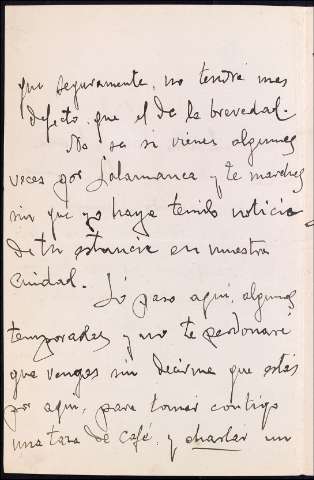 que seguramente, no tendrá mas
defecto que el de la brevedad.
No se si vienes algunas
veces por Salamanca y te marches
sin que yo haya tenido noticia
de tu estancia en nuestra
Ciudad.
Yo paso aquí, algunas
temporadas y no te perdonaré
que vengas sin decirme que estás
por aquí, para tomar contigo
una taza de café, y charlar un